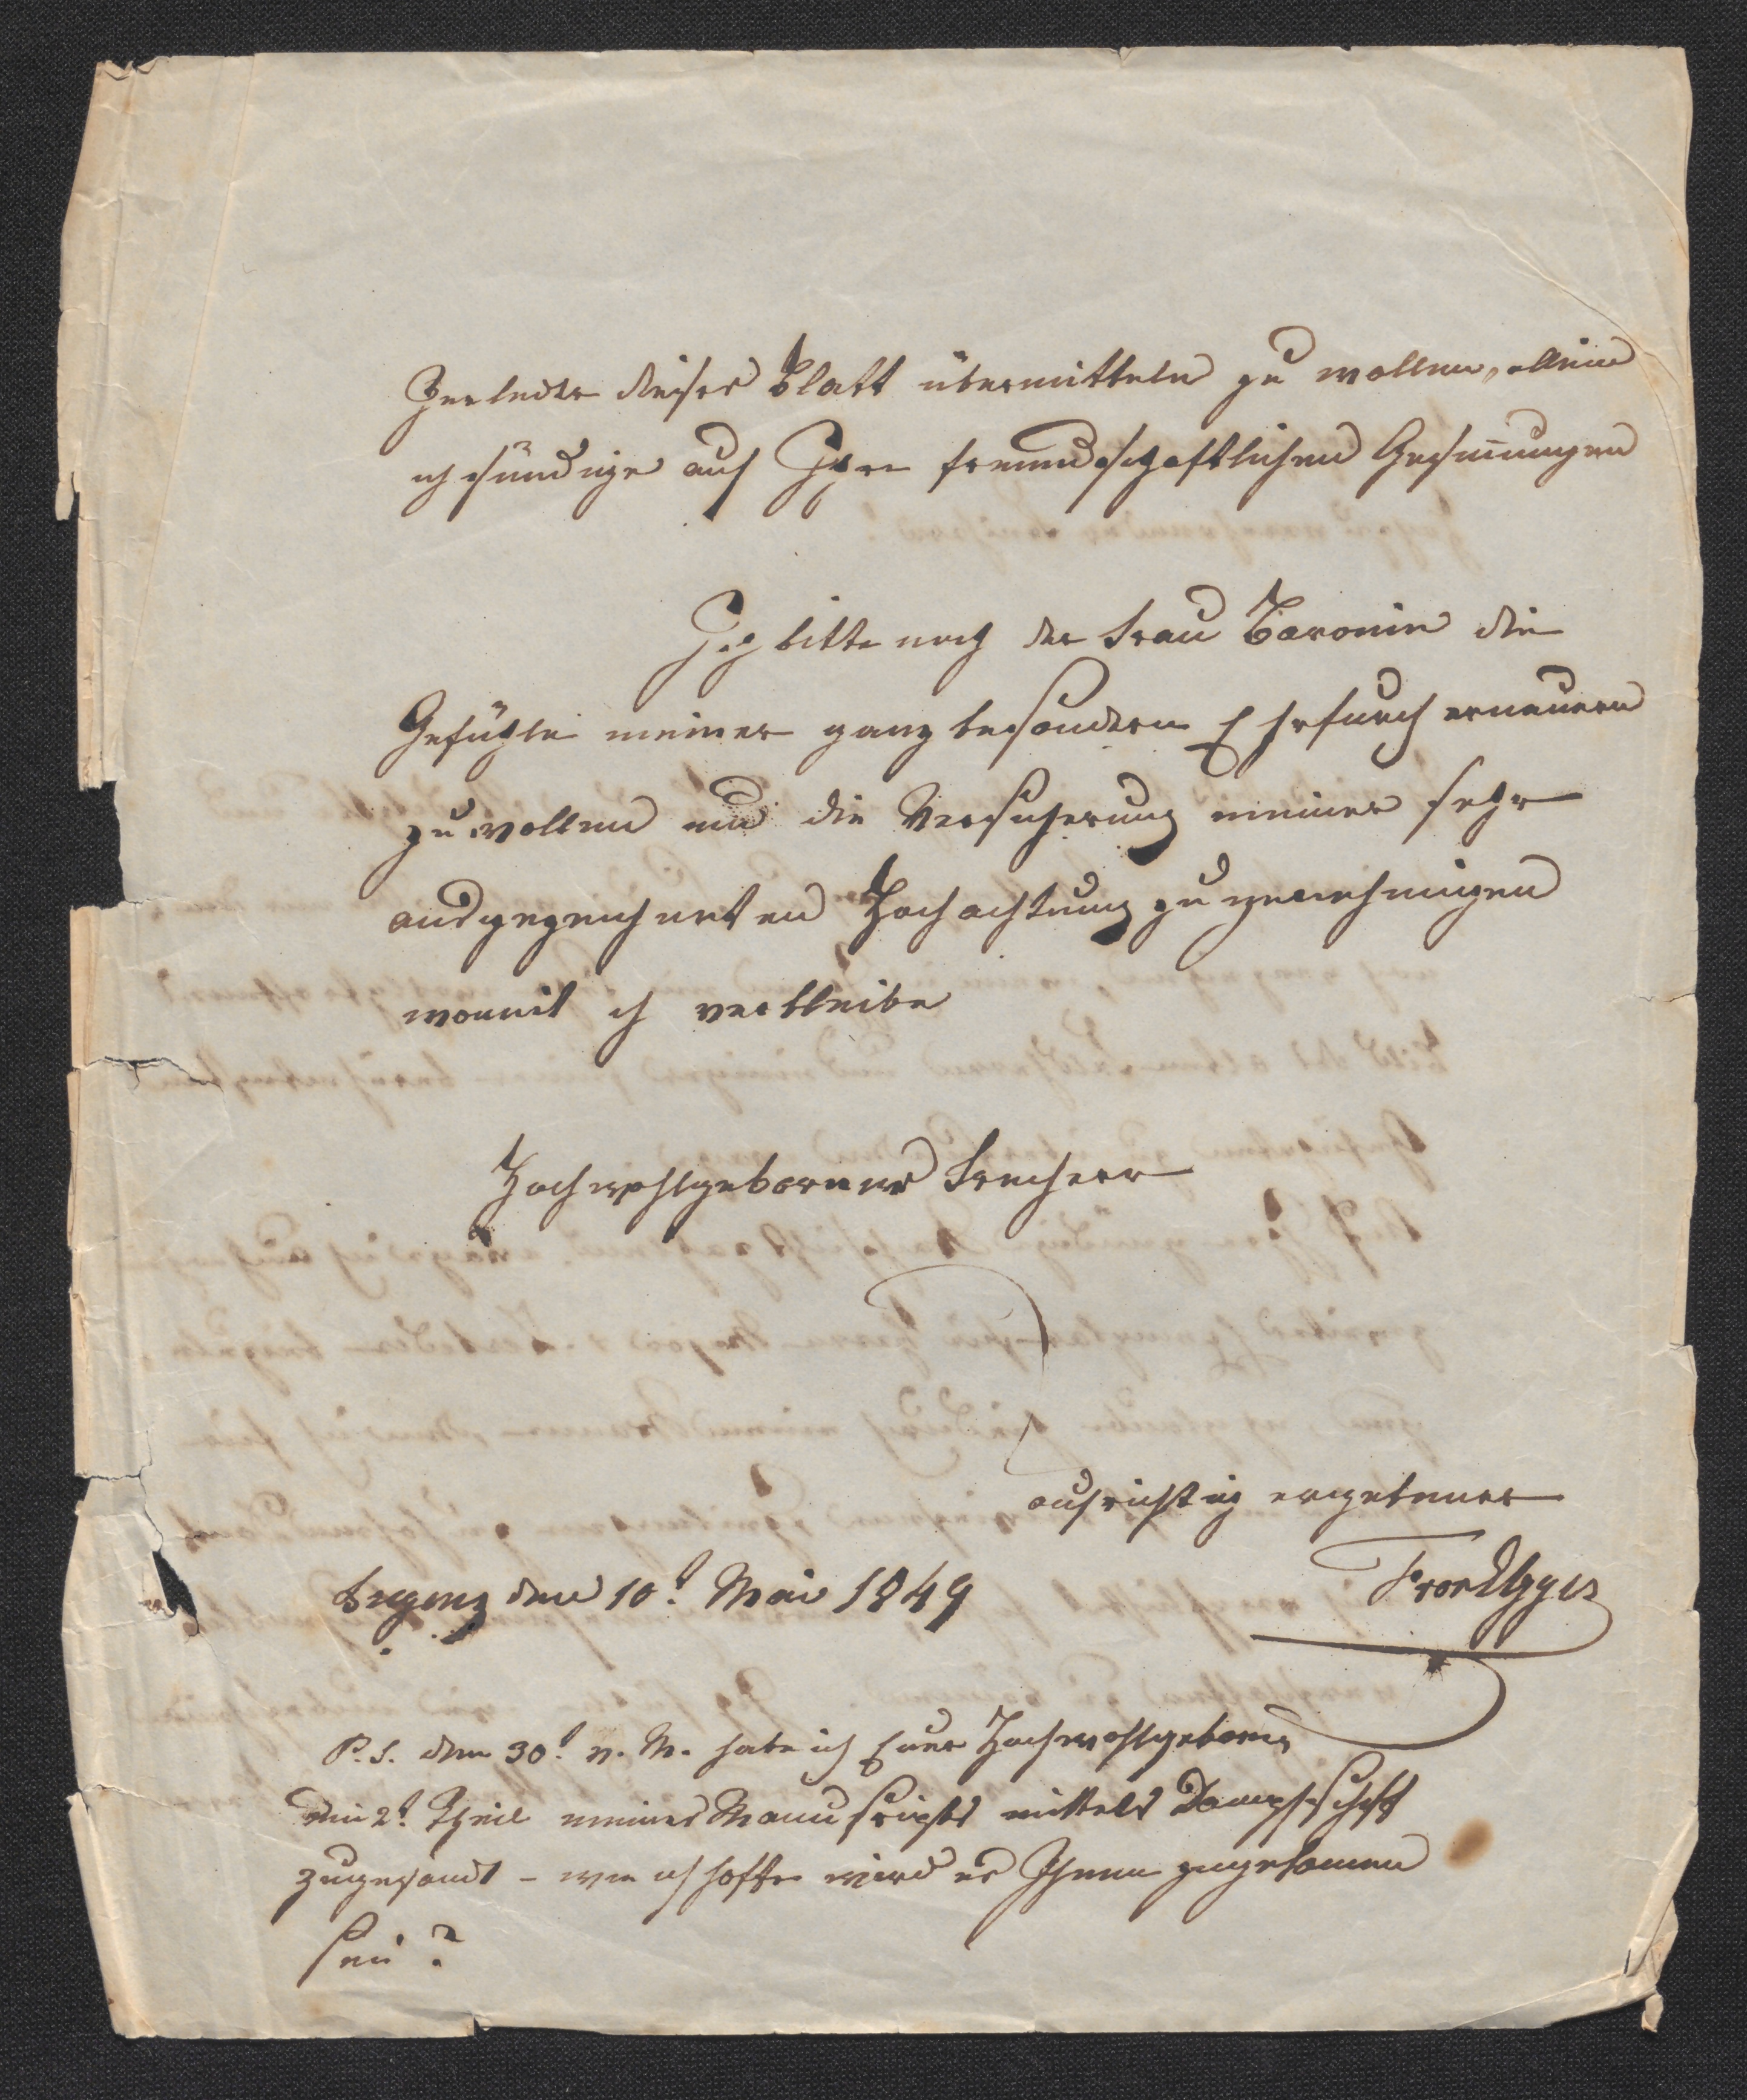 dieses Blatt übermitteln zu wollen, allein
ich sündige auf Ihre freundschaftlichen Gesinnungen
Ich bitte noch der Frau Baronin die
Gefühle meiner ganz besondern Ehrfurch erneuern
zu wollen und die Versicherung meiner sehr
ausgezeichneten Hochachtung zu genehmigen
womit ich verbleibe
Hochwohlgeborner Freiherr
aufrichtig ergebener
Bregenz den 10t. Mai 1849
P.S. den 30t. v. M. habe ich Euer Hochwohlgeborn
den 2t. Theil meines Manuscripts mittels Dampfschiff
zugesandt - wie ich hoffe wird es Ihnen zugekommen
sein?